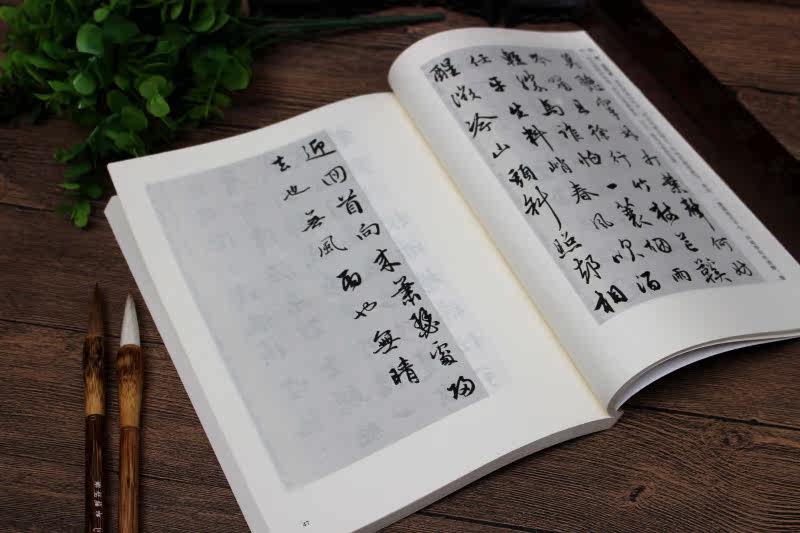 莫聽穿林打葉聲何妨
吟嘯且徐行竹杖芒鞵
輕勝馬誰怕一蓑烟雨
任平生料峭春風吹酒
醒微冷山頭斜照却相
迎回首向來蕭瑟處歸
去也無風雨也無晴